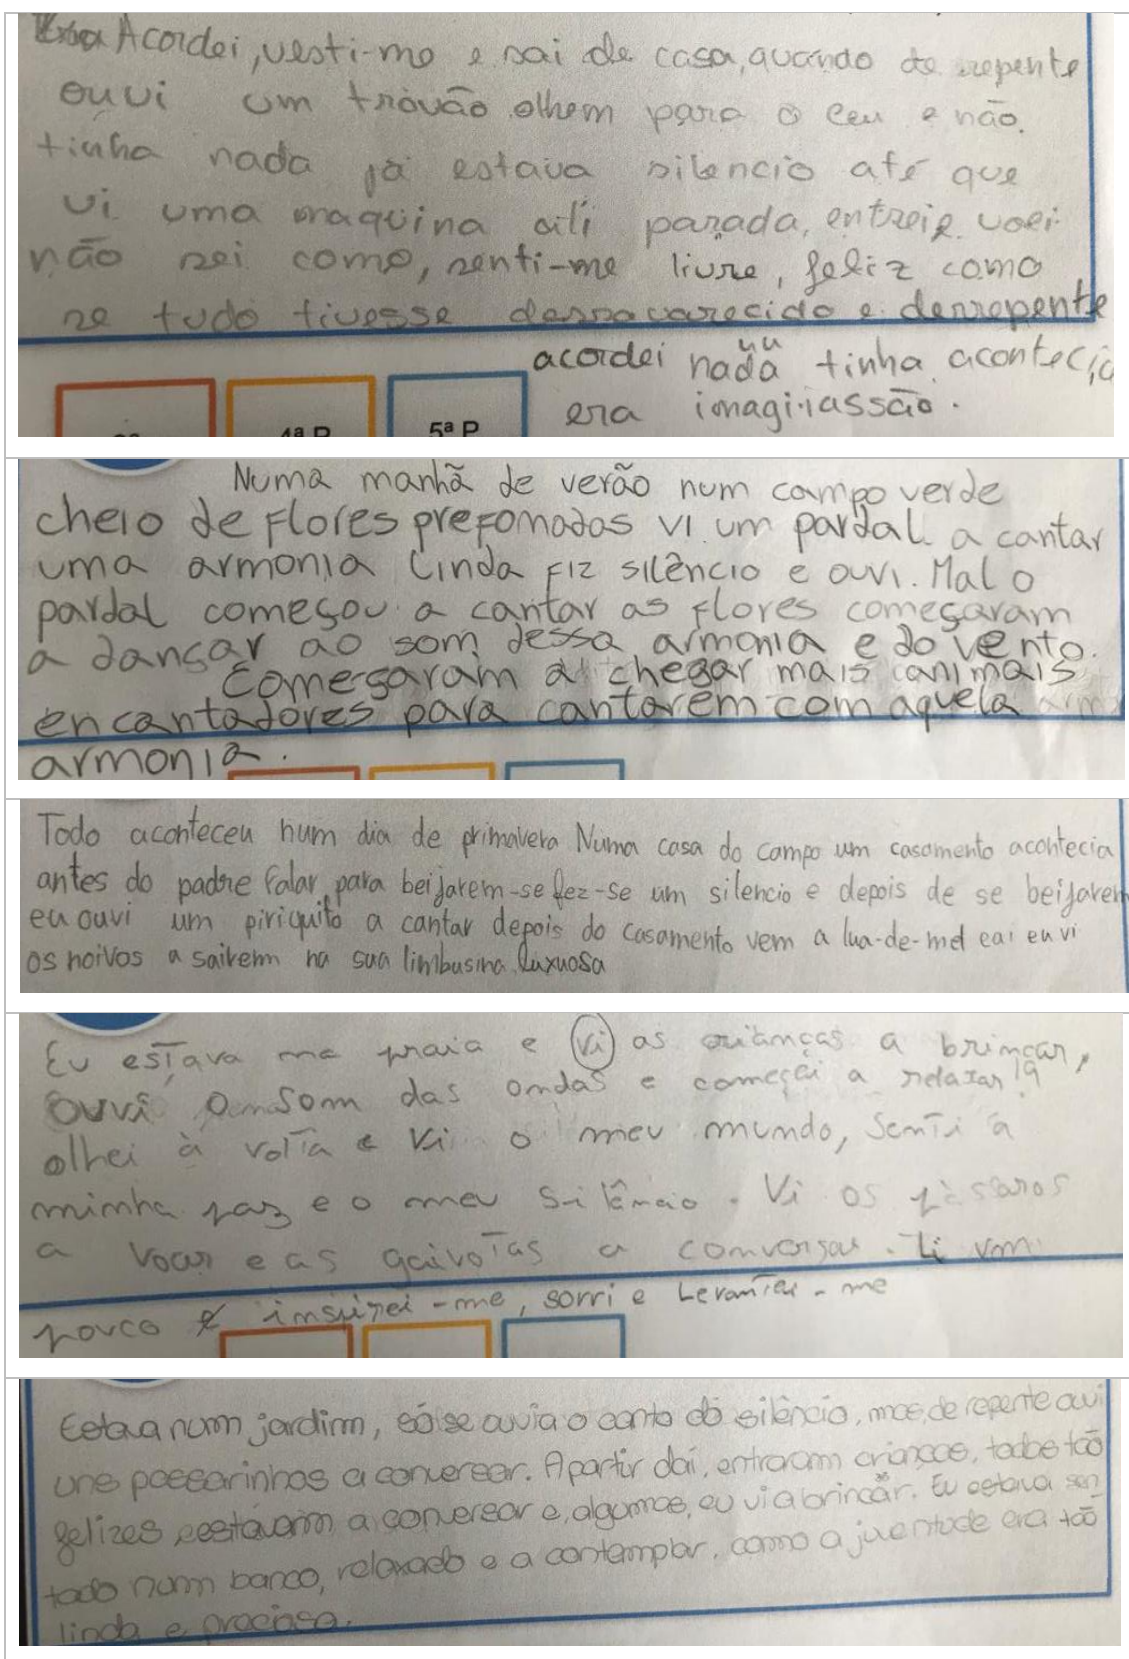 Acordei, vesti-me e sai de casa, quando de repente
ouvi um trovão olhem para o ceu e não
tinha nada já estava silencio até que
vi uma maquina ali parada, entrei e voei
não sei como, senti-me livre, feliz como
se tudo tivesse dessaparecido e derrepente
acordei nada tinha
era
4ª P
5ª P
Numa manhã de verão num campo verde
cheio de Flores preFomadas vi um pardal a cantar
uma armonia linda Fiz silêncio e ouvi. Mal o
pardal começou a cantar as Flores começaram
a dançar ao som dessa armonia e do vento.
Começaram a chegar mais animais
encantadores para cantarem com aquela
armonia.
Todo aconteceu num dia de primavera Numa casa do campo um casamento acontecia
antes do padre falar para beijarem-se fez-se um silencio e depois de se beijarem
eu ouvi um piriquito a cantar depois do casamento vem a lua-de-mel e ai eu vi
os noivos a sairem na sua limbusina luxuosa
Eu estava na praia e vi as crianças a brincar,
ouvi o som das ondas e começei a relaxar
olhei à volta e vi o meu mundo, senti a
minha paz e o meu silêncio. Vi os pàssaros
a voar e as gaivotas a conversar. Li um
pouco inspirei-me, sorri e Levantei-me
Estava num jardim, só se ouvia o canto do silêncio, mas, de repente ouvi
uns passarinhos a conversar. A partir daí, entraram crianças, todas tão
felizes estavam a conversar e, algumas, eu via brincar. Eu estava sen
tado num banco, relaxado e a contemplar, como a juventude era tão
linda e preciosa.